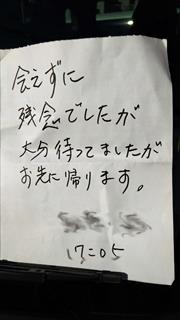 会えずに
残念でしたが
大分待ってましたが
お先に帰ります。
17:05